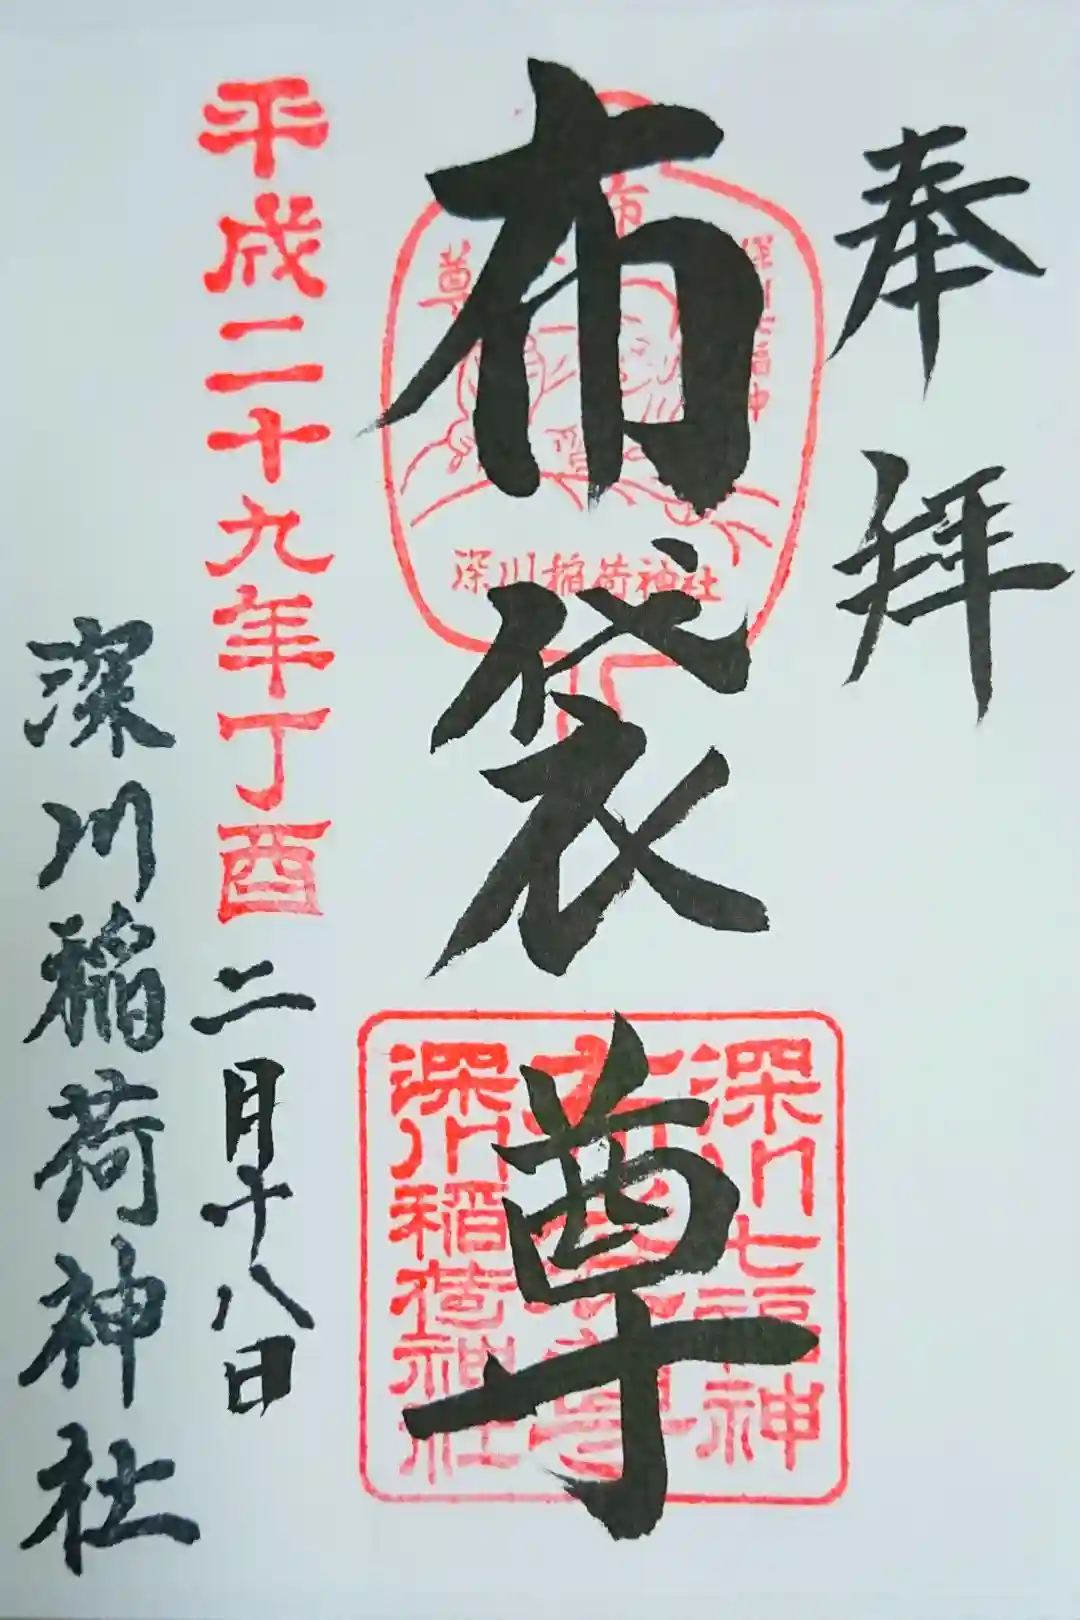 奉拝
布袋尊
深川七福神
布袋尊
深川稲荷神社
深川稲荷神社
平成二十九年丁酉
二月十八日
深川稲荷神社